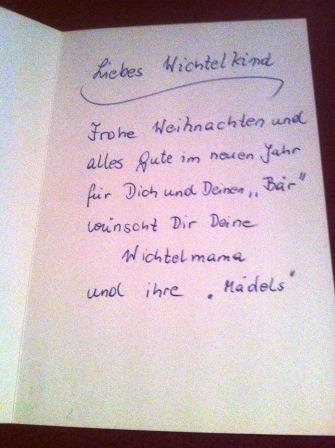 Liebes Wichtelkind
Frohe Weihnachten und
alles Gute im neuen Jahr
für Dich und Deinen „Bär"
wünscht Dir Deine
Wichtelmama
und ihre „Mädels"